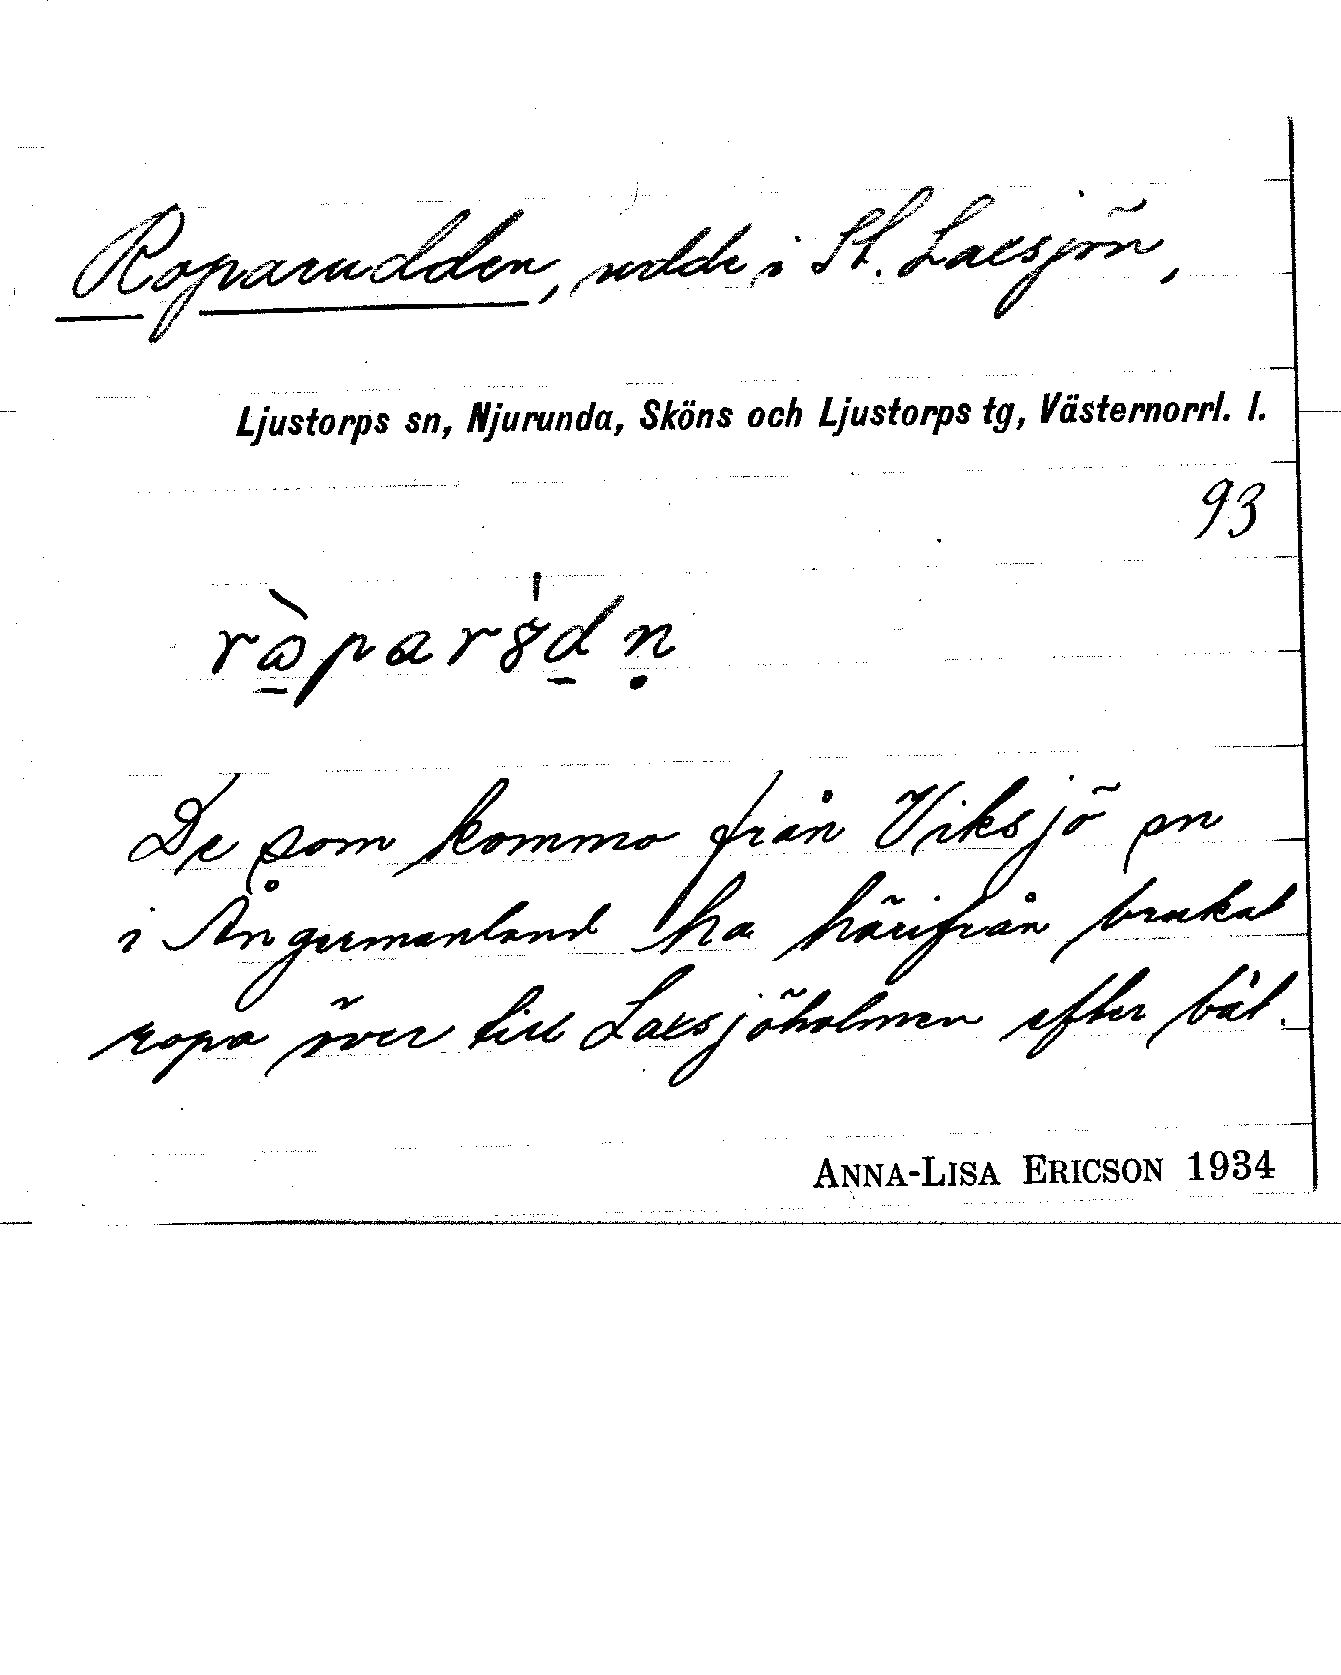 Roparudden, udde i St. Laxsjön,
Ljustorps sn, Njurunda, Sköns och Ljustorps tg, Västernorrl. l.
93
De som kommo från Viksjö sn
i Ångermanland ha härifrån brukat
ropa över till Laxsjöholmen efter båt.
ANNA-LISA ERICSON 1934